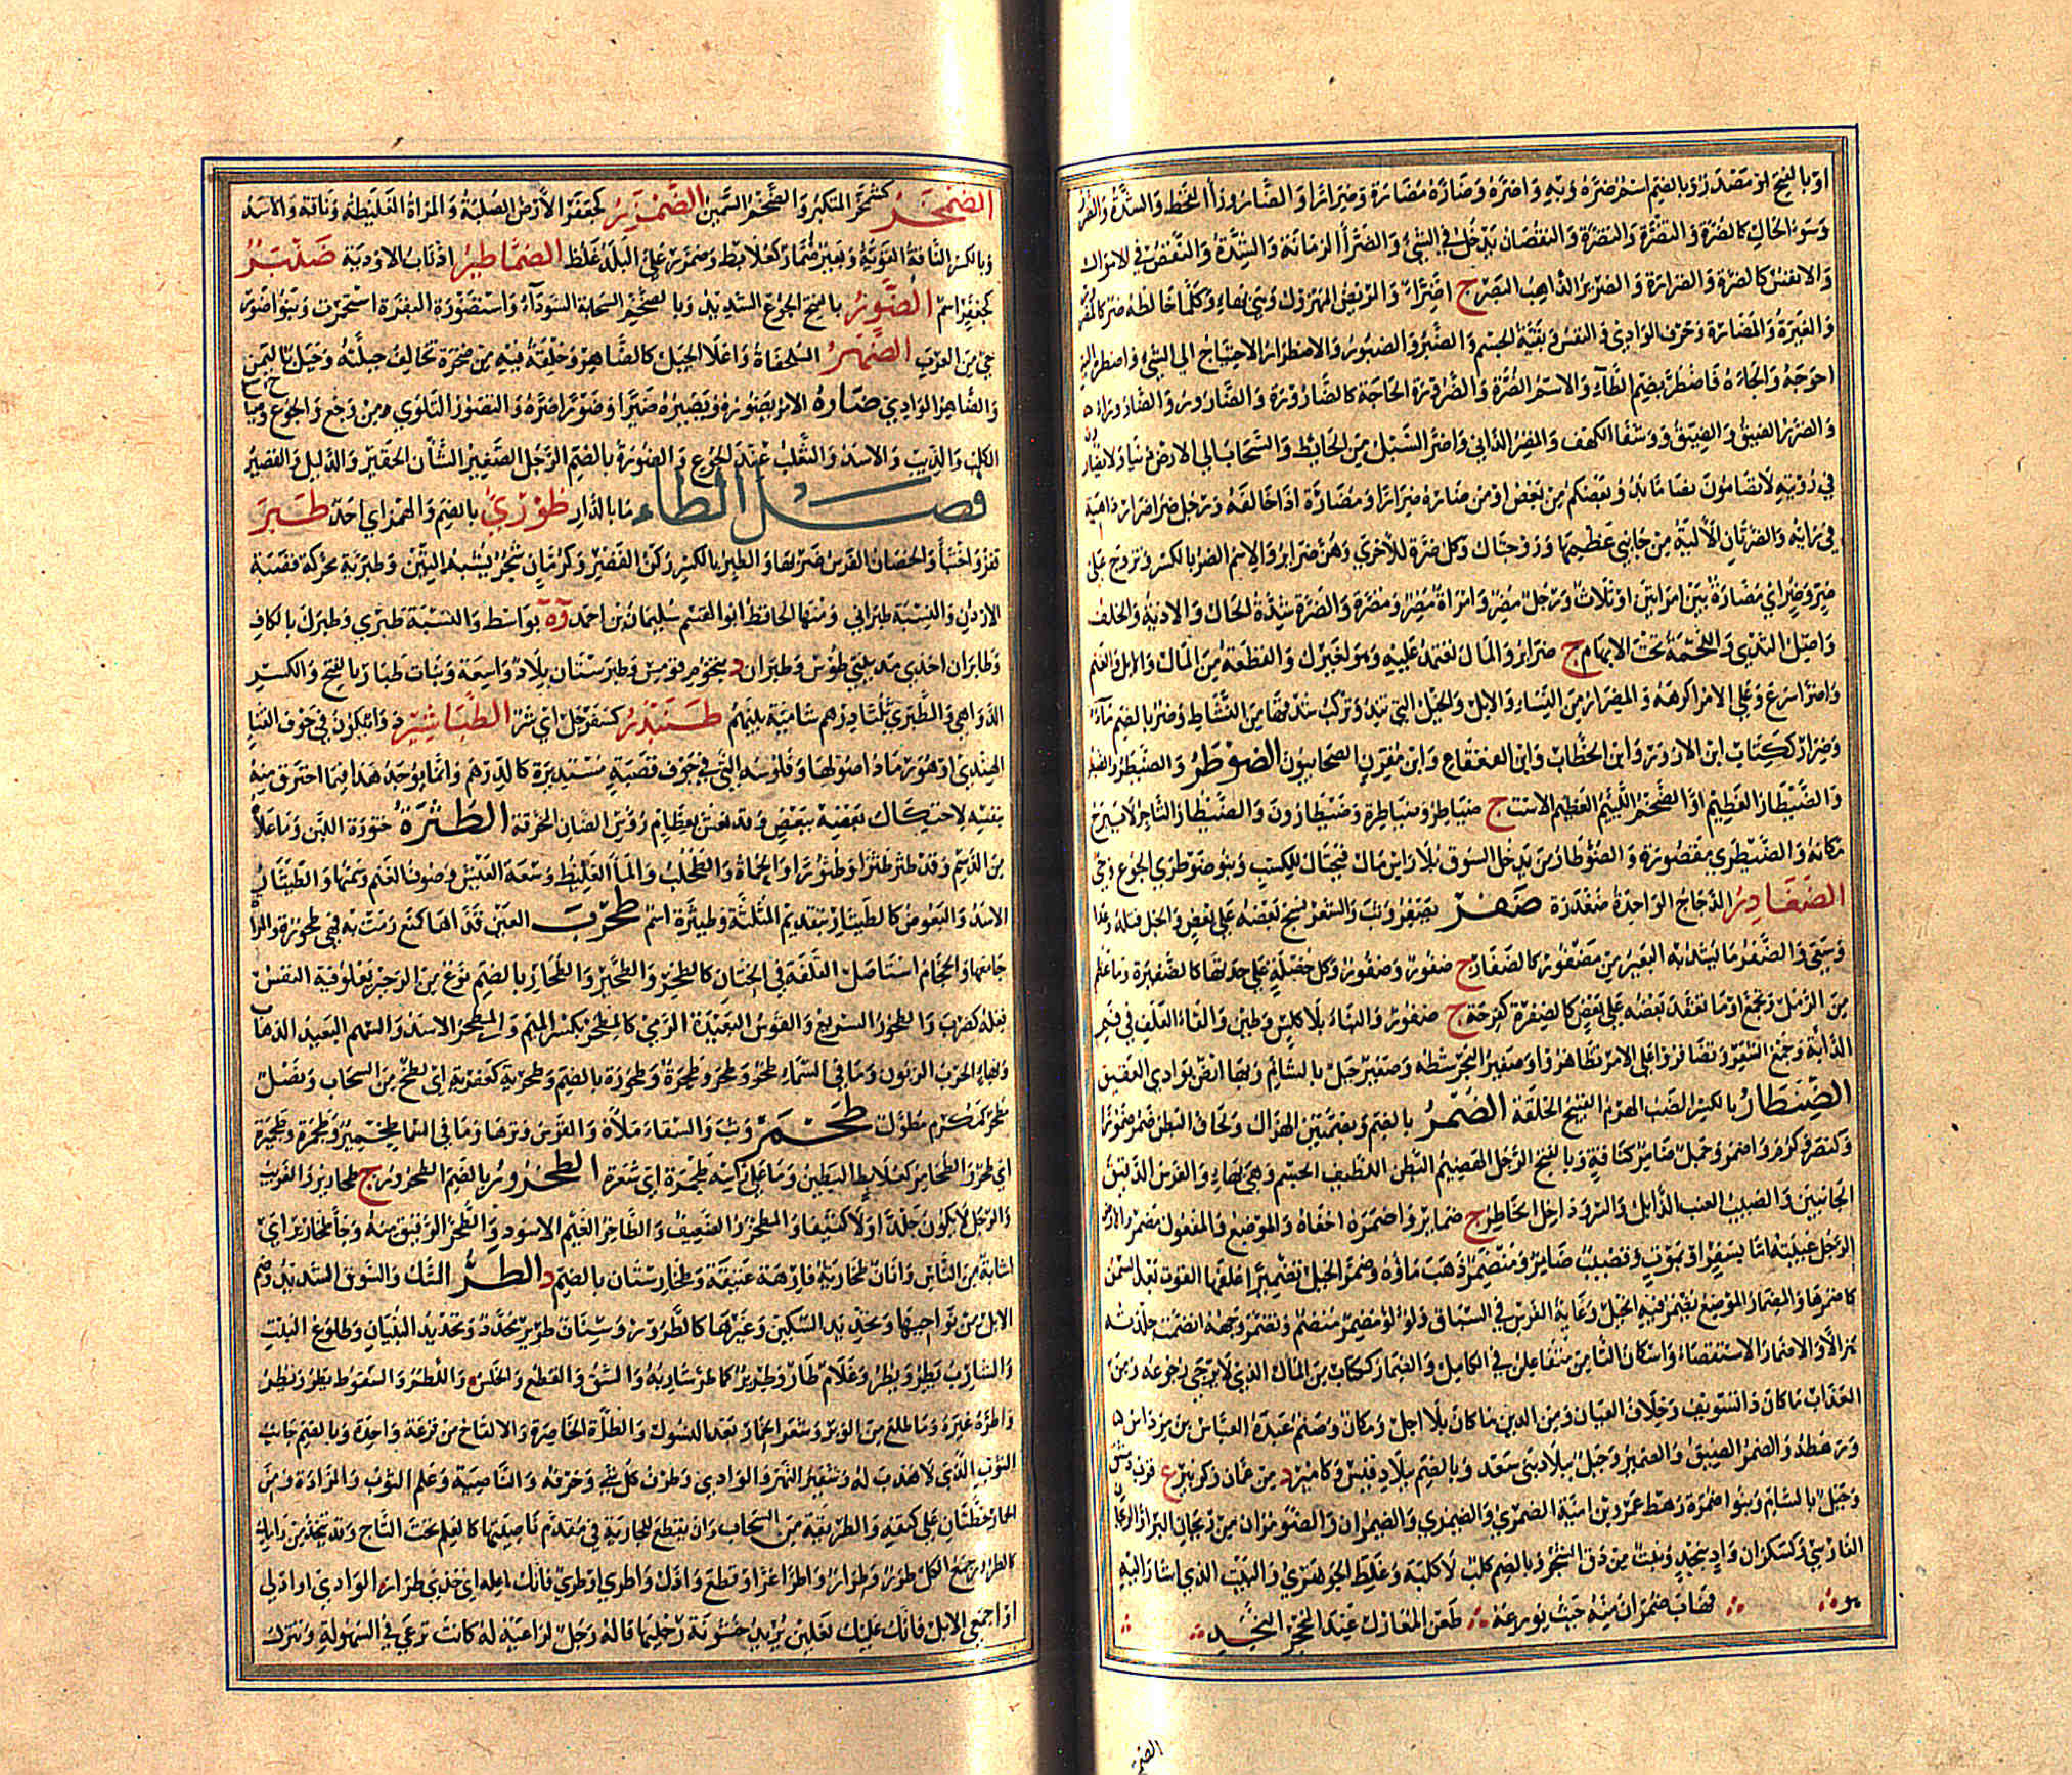 او بالفتح مصدر وبالضم اسم ضره وبه واضره وضاره مضارة وضرارا والضاروراء القحط والشدة والضرر
وسوء الحال كالضر والتضرة والتضرة والنقصان يدخل في الشيء والضراء الزمانة والشدة والنقص في الاموال
والانفس كالضرة والضرارة والضرير الذاهب البصر ج اضراء والمريض المهزول وهي بهاء وكلما خالطه ضر كالمضرور
والغيرة والمضارة وحرف الوادي والنفس وبقية الجسم والصبر والصبور والاضطرار الاحتياج الى الشيء واضطره اليه
احوجه والجأه فاضطر بضم الطاء والاسم الضرة والضرورة الحاجة كالضارورة والضارور والضاروراء
والضرر الضيق والضيق وشفا الكهف والمضر الداني واضر السيل من الحائط والسحاب الى الارض دنيا ولا يضار
في رؤيته لا تضامون بضاما يدنو بعضكم من بعض او من ضاره ضرارا ومضارة اذا خالفه ورجل ضر اضرار داهية
في رايه والضرتان الالية من جانبي عظيمها وزوجتاك وكل ضرة للاخرى وهن ضرائر والاسم الضر بالكسر وتزوج على
ضر وضر اي مضارة بين امرأتين او ثلاث ورجل مضر وامراة مضر ومضرة والضرة شدة الحال والاذية والخلف
واصل الثدي واللحمة تحت الابهام ج ضرائر والمال تعتمد عليه وهو لغيرك والقطعة من المال والابل والغنم
واضر اسرع وعلى الامر اكرهه والمضرار من النساء والابل والخيل التي تند وتركب شدقها من النشاط وضر بالضم ماء
وضرار ككتاب ابن الازور وابن الخطاب وابن القعقاع وابن مقرن الصحابيون الضوطر والضيطر والضيطرى
والضيطار العظيم او الضخم اللئيم العظيم الاست ج ضياطر وضياطرة وضيطارون والضيطار التاجر لا يبرح
مكانه والضيطرى مقصورة والضوطار من يدخل السوق بلا راس مال فيحتال للكسب وبنو ضوطرى الجوع وحي
الضغادر الدجاج الواحدة ضغدرة ضفر يضفر وثب والشعر نسج بعضه على بعض والحبل فتله وعدا
وسعى والضفر ما يشد به البعير من مضفور كالضفار ج ضفور وضفر وكل خصلة على حدتها كالضفيرة وما عظم
من الرمل وتجمع او ما تعقد بعضه على بعض كالضفرة كفرحة ج ضفور والبناء بلا كلس وطين والقاء العلف في فم
الدابة وجمع الشعر وتضافروا على الامر تظاهروا وضفير البحر شطه وضفير جبل بالشام وبها ارض بوادي العقيق
الضنطار بالكسر الضب الهرم القبيح الخلقة الضمر بالضم وبضمتين الهزال ولحاق البطن ضمر ضمورا
وكنصر وكرم واضمر وجمل ضامر كناقة وبالفتح الرجل الهضيم البطن اللطيف الجسم وهي بهاء والفرس الدقيق
الحاجبين والضمير العنب الذابل والسر وداخل الخاطر ج ضمائر واضمره اخفاه والموضع والمفعول مضمر والارض
الرجل غيبته اما بسفر او بموت وقضيب ضامر ومنضمر ذهب ماؤه وضمر الخيل تضميرا علفها القوت بعد السمن
كاضمرها والمضمار الموضع تضمر فيه الخيل وغاية الفرس في السباق ولؤلؤ مضطمر منضم وتضمر وجهه انضمت جلدته
هزالا والاضمار الاستقصاء واسكان التاء من متفاعلن في الكامل والضمار ككتاب من المال الذي لا يرجى رجوعه ومن
العذاب ما كان ذا تسويف وخلاف العيان ومن الدين ما كان بلا اجل ومكان وصنم عبده العباس بن مرداس
ورهطه والضمر الضيق والضمير وجبل ببلاد بني سعد وبالضم ببلاد قيس وكامير د من عمان وكزبير ع قرب دمشق
وجبل بالشام وبنو ضمرة رهط عمرو بن امية الضمري والضيمري والضيمران والضومران من ريحان البر او الريحان
الفارسي وكسكران واد بنجد ونبت من دق الشجر وبالضم كلب لا كلبة وغلط الجوهري والبيت الذي اشار اليه
هو فهاب ضمران منه حيث يوزعه طعن المعارك عند المحجر النجد
الضم
الضمخر كشمخر المتكبر والضخم السمين الضمزر كجعفر الارض الصلبة والمراة الغليظة وناقة والاسد
وبالكسر الناقة القوية وبعير ضمارز كعلابط وضمزر على البلد غلظ الضماطير اذناب الاودية ضنبر
كجعفر اسم الضور بالفتح الجوع الشديد وبالضم السحابة السوداء واستضور البقرة استحرمت وبنو ضور
حي من العرب الضهر السلحفاة واعلا الجبل كالضاهر وخلقة فيه من صخرة تخالف جبلته وجبل باليمن
والضاهر الوادي ضاره الامر يضوره ويضيره ضيرا وضورا ضره والتضور التلوي من وجع والجوع وصياح
الكلب والذئب والاسد والثعلب عند الجوع والضورة بالضم الرجل الصغير الشان الحقير والذليل والفقير
فصل الطاء ما بالدار طوري بالضم والهمز اي احد طبر
قفز واختبأ والحصان الفرس ضربها والطبر بالكسر ركن القصر وكرمان شجر يشبه التين وطبرية محركة قصبة
الاردن والنسبة طبراني ومنها الحافظ ابو القسم سليمان بن احمد وة بواسط والنسبة طبري وطبرك بالكاف
وطابران احدى مدينتي طوس وطبران د بتخوم قومس وطبرستان بلاد واسعة وبنات طبار بالفتح والكسر
الدواهي والطبري ثلثا درهم شامية بينهم طنبذر كسفرجل اي شرا الطباشير دواء يكون في جوف القنا
الهندي او هو رماد اصولها وفلوسه التي في جوف قصبة مستديرة كالدرهم وانما يوجد هذا فيما احترق منه
بنفسه لاحتكاك بعضه ببعض وقد يغش بعظام رؤس الضان المحرقة الطثرة خثورة اللبن وما علاه
من الدسم وقد طثر طثرا وطثورا والحماة والطحلب والماء الغليظ وسعة العيش وصوف الغنم وسمنها والطيثار
الاسد والبعوض كالطيثار بتقديم المثلثة وطيثرة اسم طحرت العين قذاها كمنع رمت به فهي طحورة والمراة
جامعها والحجام استاصل القلفة في الختان كالطحر والطحير والطحار بالضم نوع من الزحير يعلو فيه النفس
فعله كضرب والطحور السريع والقوس البعيدة الرمي كالمطحر بكسر الميم والمطحر الاسد والسهم البعيد الذهاب
وبهاء الحرب الزبون وما في السماء طحر وطحر وطحرة وطحورة بالضم وطحرية كعفرية اي لطخ من السحاب ونصل
مطحر كمكرم مطول طحمر وثب والسقاء ملأه والقوس وترها وما في السماء طحمرير وطحمرة وطحمريرة
اي طحر والطحامر كعلابط البطين وما على راسه طحمرة اي شعرة الطخرور بالضم الطحرور ج طخارير والغريب
والرجل لا يكون جلدا ولا كثيفا والمطخر والضعيف والطاخر الغيم الاسود والطخر الرقيق منه وجأ طخارير اي
اشابة من الناس واتان طخارية فارهة عتيقة وطخارستان بالضم د الطر الشك والسوق الشديد وضم
الابل من نواحيها وتحديد السكين وغيرها كالطرور وسنان طرير محدد وتجديد البنيان وطلوع النبت
والشارب يطر ويطر وغلام طار وطرير كما طر شاربه والشق والقطع والخلس واللطم والسقوط يطر ويطر
واطره غيره وما طلع من الوبر وشعر الحمار بعد النسول والطرة الخاصرة والالقاح من قرعة واحدة وبالضم جانب
الثوب الذي لا هدب له وشفير النهر والوادي وطرف كل شيء وحرفه والناصية وعلم الثوب والمزادة ومن
الحمار خطتان على كتفيه والطريقة من السحاب وان يقطع للجارية في مقدم ناصيتها كالعلم تحت التاج وقد يتخذ من رامك
كالطرار وجمع الكل طرر وطرار واطرا اغرا وقطع وادل واطري او طري فانك ناعلة اي خذي طرار الوادي او ادلي
اذا جمعي الابل فانك عليك نعلين يريد خشونة رجليها قاله رجل لراعية له كانت ترعى في السهولة وتترك